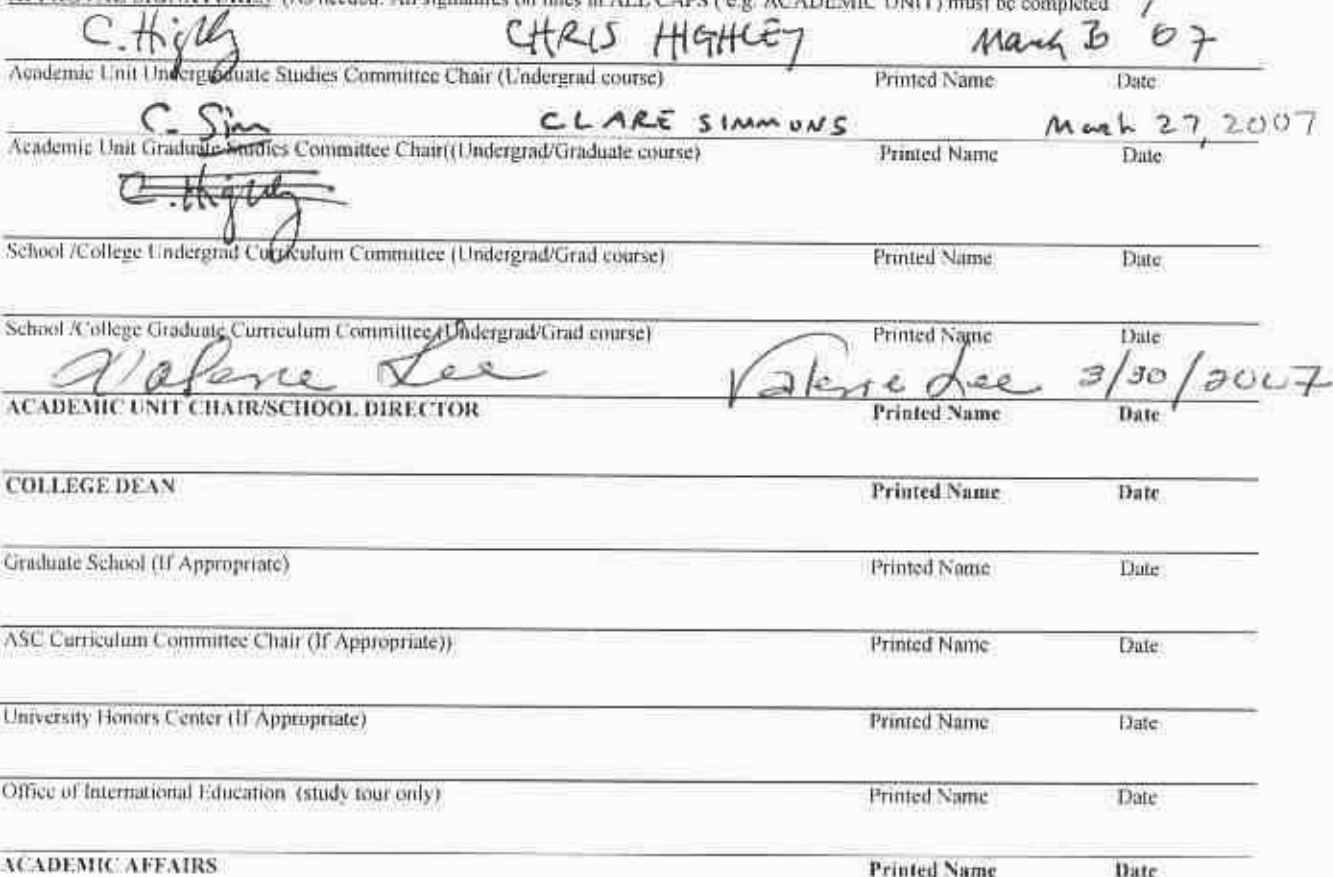 (As needed. All signatures on lines in ALL CAPS ( e.g. ACADEMIC UNIT) must be completed
C. Highley CHRIS HIGHLEY March 07
Academic Unit Undergraduate Studies Committee Chair (Undergrad course) Printed Name Date
C. Sim CLARE SIMMONS March 27, 2007
Academic Unit Graduate Studies Committee Chair((Undergrad/Graduate course) Printed Name Date
C. Highley
School /College Undergrad Curriculum Committee (Undergrad/Grad course) Printed Name Date
School /College Graduate Curriculum Committee (Undergrad/Grad course) Printed Name Date
Valerie Lee Valerie Lee 3/30/2007
ACADEMIC UNIT CHAIR/SCHOOL DIRECTOR Printed Name Date
COLLEGE DEAN Printed Name Date
Graduate School (If Appropriate) Printed Name Date
ASC Curriculum Committee Chair (If Appropriate)) Printed Name Date
University Honors Center (If Appropriate) Printed Name Date
Office of International Education (study tour only) Printed Name Date
ACADEMIC AFFAIRS Printed Name Date